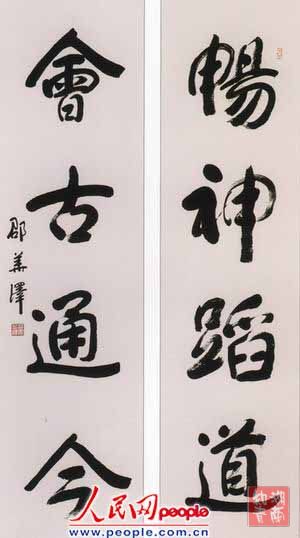 暢神蹈道
會古通今
邵華澤
人民网people
www.people.com.cn